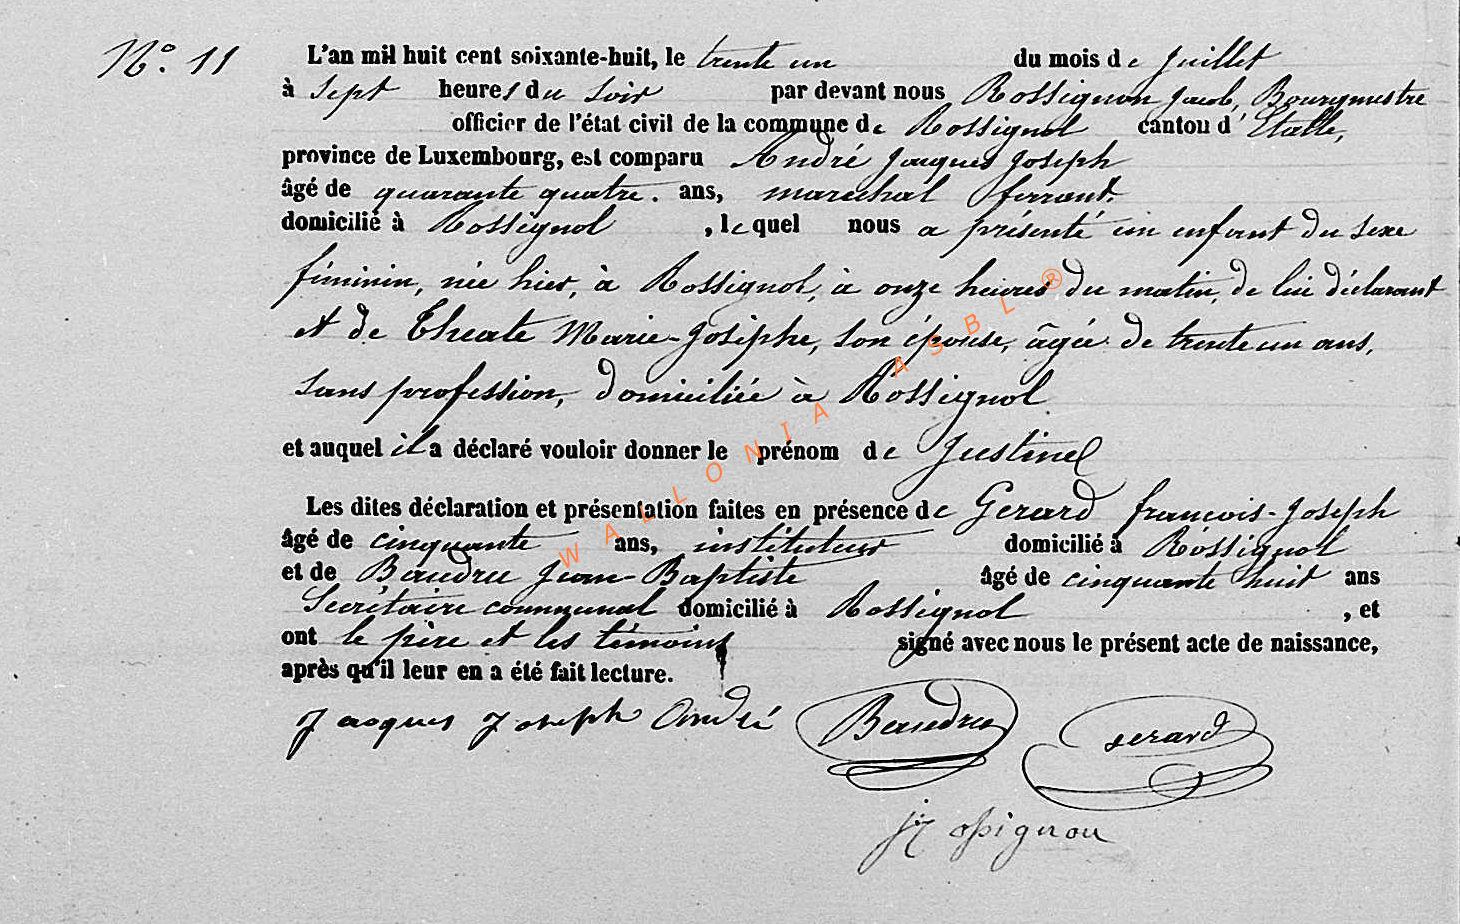 N° 11
L'an mil huit cent soixante-huit, le trente un du mois de Juillet
à Sept heures du Soir par devant nous Rossignon Jacob, Bourgmestre
officier de l'état civil de la commune de Rossignol canton d'Etalle,
province de Luxembourg, est comparu André Jacques Joseph
âgé de quarante quatre. ans, maréchal ferrant.
domicilié à Rossignol , lequel nous a présenté un enfant du sexe
féminin, née hier, à Rossignol, à onze heures du matin, de lui déclarant
et de Theate Marie-Josèphe, son épouse, âgée de trente un ans,
sans profession, domiciliée à Rossignol
et auquel il a déclaré vouloir donner le prénom de Justine
Les dites déclaration et présentation faites en présence de Gerard françois-Joseph
âgé de cinquante ans, instituteur domicilié à Rossignol
et de Baudru Jean-Baptiste âgé de cinquante huit ans
Secrétaire communal domicilié à Rossignol , et
ont le père et les témoins signé avec nous le présent acte de naissance,
après qu'il leur en a été fait lecture.
Jacques Joseph André Baudru Gerard
J Rossignon
WALLONIA ASBL ®